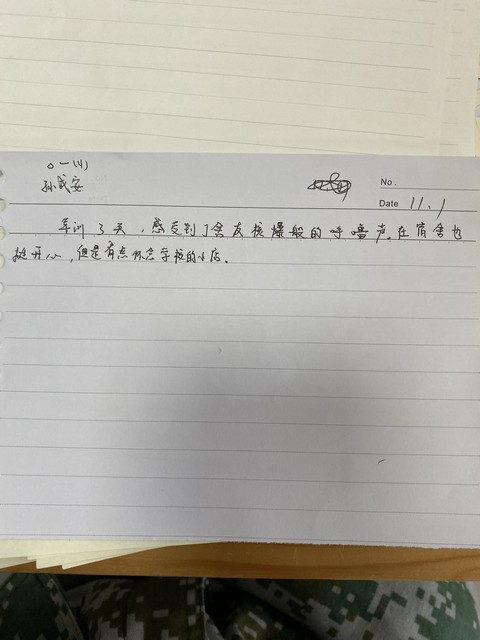 高一(4)
孙成安
No.
Date 11.1
军训3天，感受到了舍友核爆般的呼噜声。在宿舍也
挺开心，但是有点怀念学校的小店。